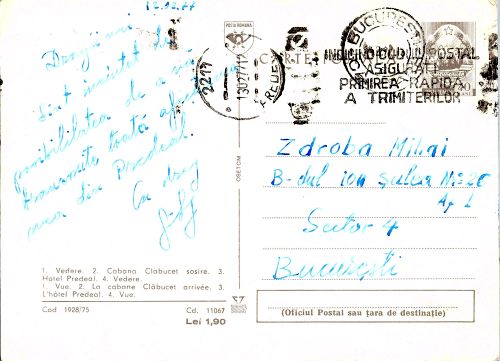 12.02.77
Dragii mei
Sînt încîntat de
posibilitatea de a vă
transmite toată afecțiunea
mea din Predeal.
Cu drag
POSTA ROMANA
CARTE
2217
13.02.77 12
PREDEAL
BUCUREȘTI
INDICÎND CODUL POSTAL
ASIGURAȚI
PRIMIREA RAPIDA
A TRIMITERILOR
OBETCM
Zdroba Mihai
B-dul ion Șulea No 26
Ap 1
Sector 4
București
1. Vedere. 2. Cabana Clăbucet sosire. 3.
Hotel Predeal. 4. Vedere.
1. Vue. 2. La cabane Clăbucet arrivée. 3.
L'hôtel Predeal. 4. Vue.
Cod 1928/75 Cd. 11067
Lei 1,90
(Oficiul Postal sau țara de destinație)